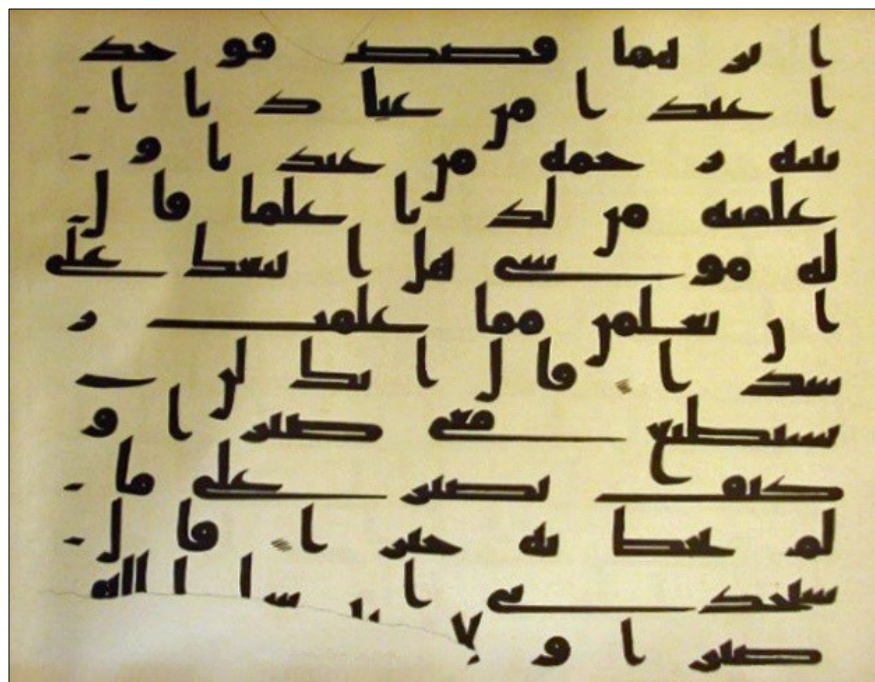 اثرهما قصص فوجد
ا عبدا من عبادنا ا
تينه رحمه من عندنا و
علمنه من لدنا علما قال
له موسى هل اتبعك على
ان تعلمن مما علمت ر
شدا قال انك لن
تستطيع معى صبرا و
كيف تصبر على ما
لم تحط به خبرا قال
ستجدنى ان شا الله
صبرا و لا